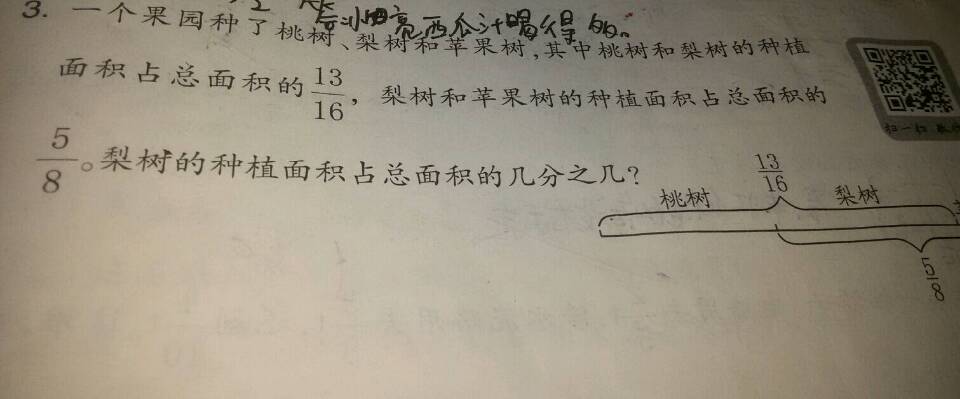 与小四亮西瓜汁喝得的。
3. 一个果园种了桃树、梨树和苹果树,其中桃树和梨树的种植
面积占总面积的13/16, 梨树和苹果树的种植面积占总面积的
5/8。梨树的种植面积占总面积的几分之几?
扫一扫
13/16
桃树 梨树
5/8